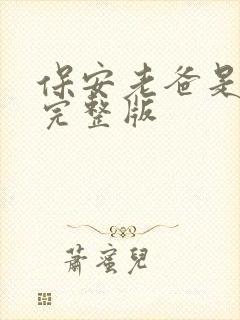 保安老爸是
完整版
萧蜜儿